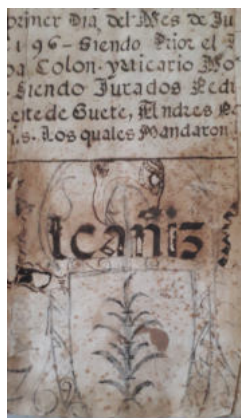 primer Dia, del Mes de Ju
196 - Siendo Prior el
Colon. y Vicario Mo
Siendo Jurados Pedr
de Guete, Andres
Los quales Mandaron
lcañiz